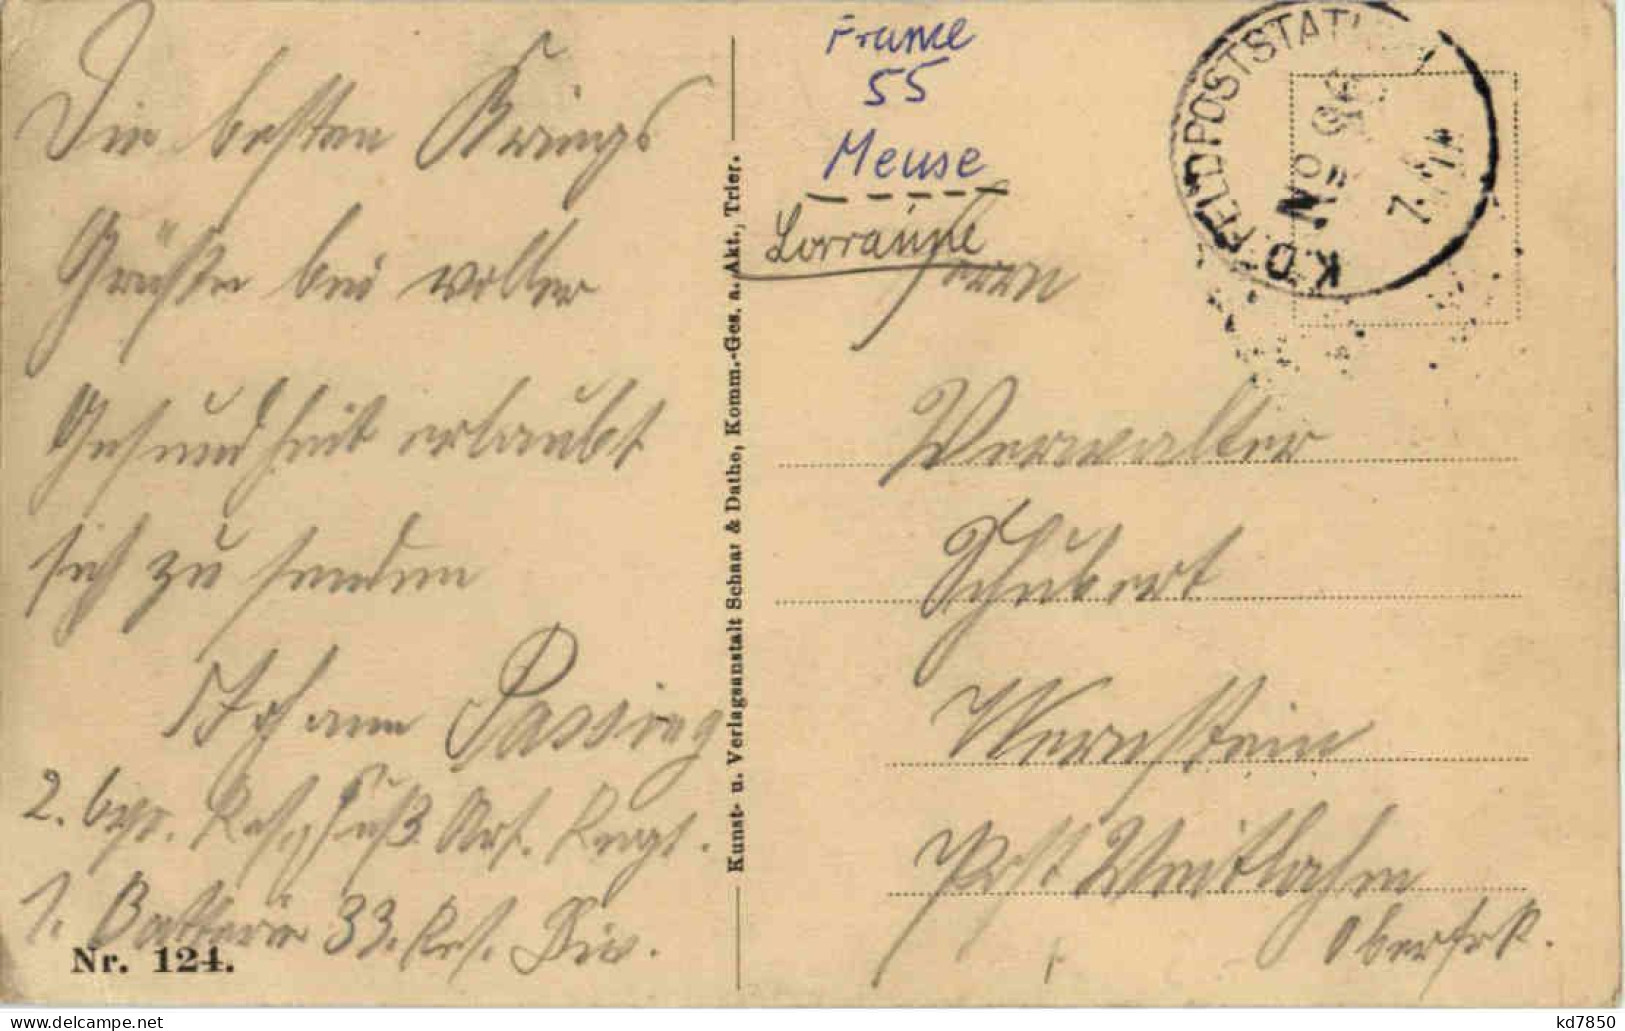 Die besten Kriegs
Grüße bei voller
Gesundheit erlaubt
sich zu senden
Johann Passing
2. bayr. Res. Fuß Art. Regt.
1. Batterie 33. Res. Div.
Nr. 124.
Kunst- u. Verlagsanstalt Schaar & Dathe, Komm.-Ges. a. Akt., Trier.
France
55
Meuse
Lorraine
K.D. FELDPOSTSTATI
No
Herrn
Verwalter
Schubert
Wernstein
Post Veitlahm
Oberfrk.
kd7850